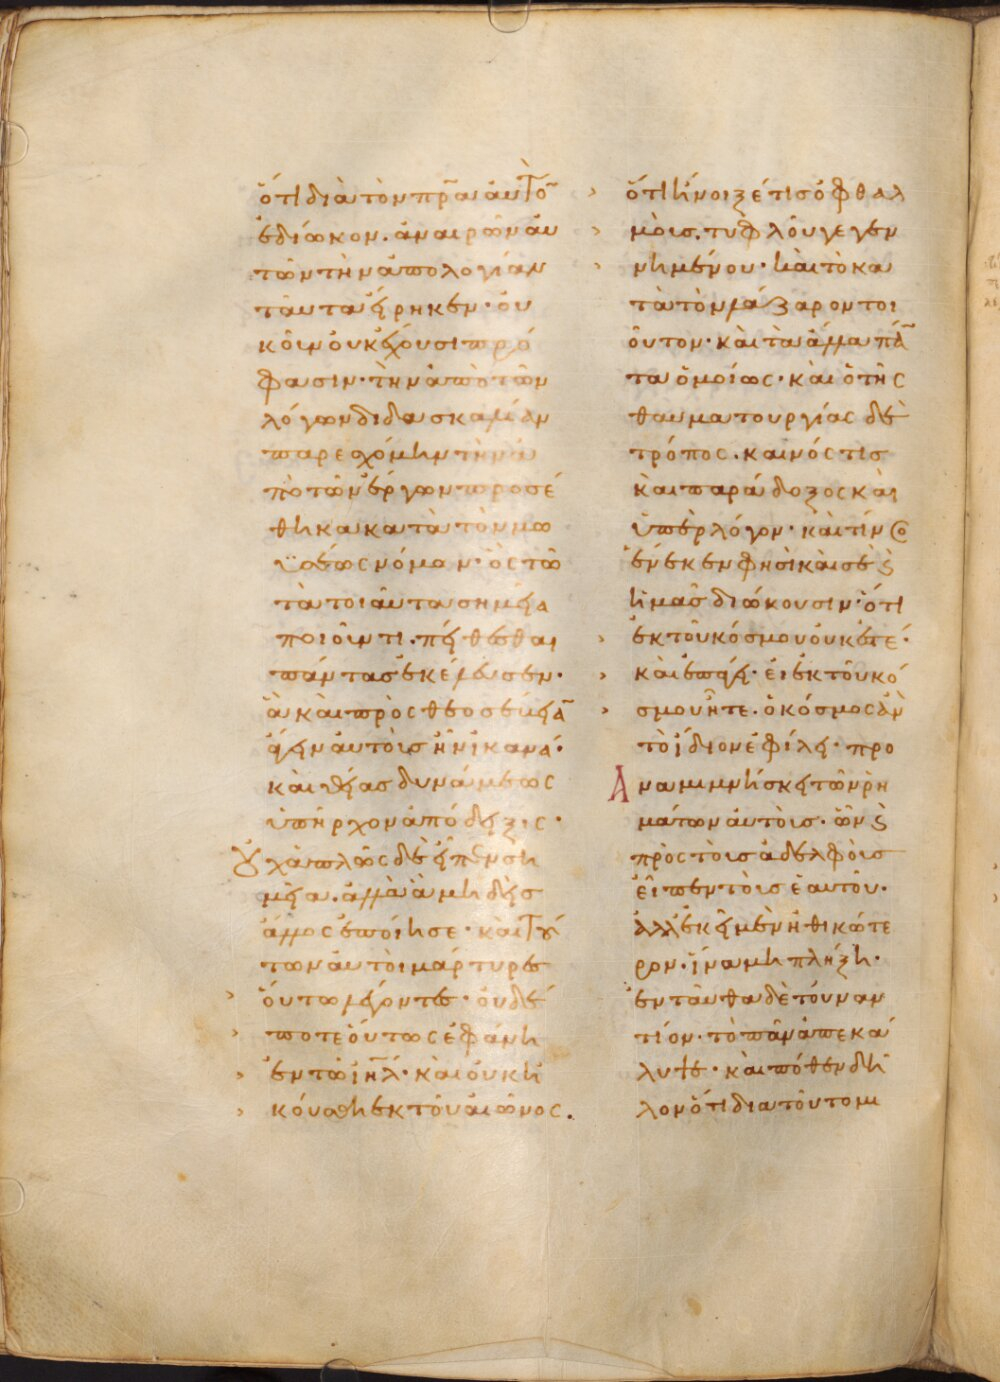 ὅτι διὰ τὸν πρ̅α αὐτὸ̅
ἐδίωκον. ἀναιρῶν αὐ
τῶν τὴν ἀπολογίαν
ταῦτα εἴρηκεν· οὐ
κοῦν οὐκ ἔχουσι πρό
φασιν· τὴν ἀπὸ τῶν
λόγων διδασκαλίαν
παρεσχόμην τὴν ἀ
πὸ τῶν ἔργων προσέ
θηκα κατὰ τὸν μω
ϋσέως νόμον· ὃς τῶ
τὰ τοιαῦτα σημεῖα
ποιοῦντι. πείθεσθαι
πάντας ἐκέλευσεν·
ἃ καὶ πρὸς θεοσέβεια̅
ἄγειν αὐτοὺς ἦν ἱκανά·
καὶ θείας δυνάμεως
ὑπῆρχον ἀπόδειξις·
Οὐχ ἁπλῶς δὲ εἶπεν ση
μεῖα. ἀλλὰ ἃ μηδεὶς
ἄλλος ἐποίησε· καὶ τού
των αὐτοὶ μάρτυρες
οὕτω λέγοντες· οὐδέ
ποτε οὕτως ἐφάνη
ἐν τῶ ἰη̅λ· καὶ οὐκ ἠ
κούσθη ἐκ τοῦ αἰῶνος.
ὅτι ἤνοιξέ τις ὀφθαλ
μοὺς τυφλοῦ γεγεν
νημένου· καὶ τὸ κα
τὰ τὸν λάζαρον τοι
οῦτον· καὶ τὰ ἄλλα πά̅
τα ὁμοίως· καὶ ὁ τῆς
θαυματουργίας δὲ
τρόπος. καινός τις
καὶ παράδοξος καὶ
ὑπὲρ λόγον· καὶ τίνο
ἕνεκεν φησὶ καὶ σὲ καὶ
ἡμᾶς διώκουσιν· ὅτι
ἐκ τοῦ κόσμου οὐκ ἐστέ·
καὶ ἐπεὶ· εἰ ἐκ τοῦ κό
σμου ἦτε. ὁ κόσμος ἂν
τὸ ἴδιον ἐφίλει· προ
Αναμιμνήσκει τῶν ρη
μάτων αὐτοὺς. ὧν καὶ
πρὸς τοὺς ἀδελφοὺς
εἶπεν τοὺς ἑαυτοῦ.
ἀλλ' ἐκεῖ μὲν ἠθικώτε
ρον. ἵνα μὴ πλήξη·
ἐνταῦθα δὲ τοὐναν
τίον· τὸ πᾶν ἀπεκά
λυψε· καὶ πόθεν δῆ
λον ὅτι διὰ τοῦτο μι